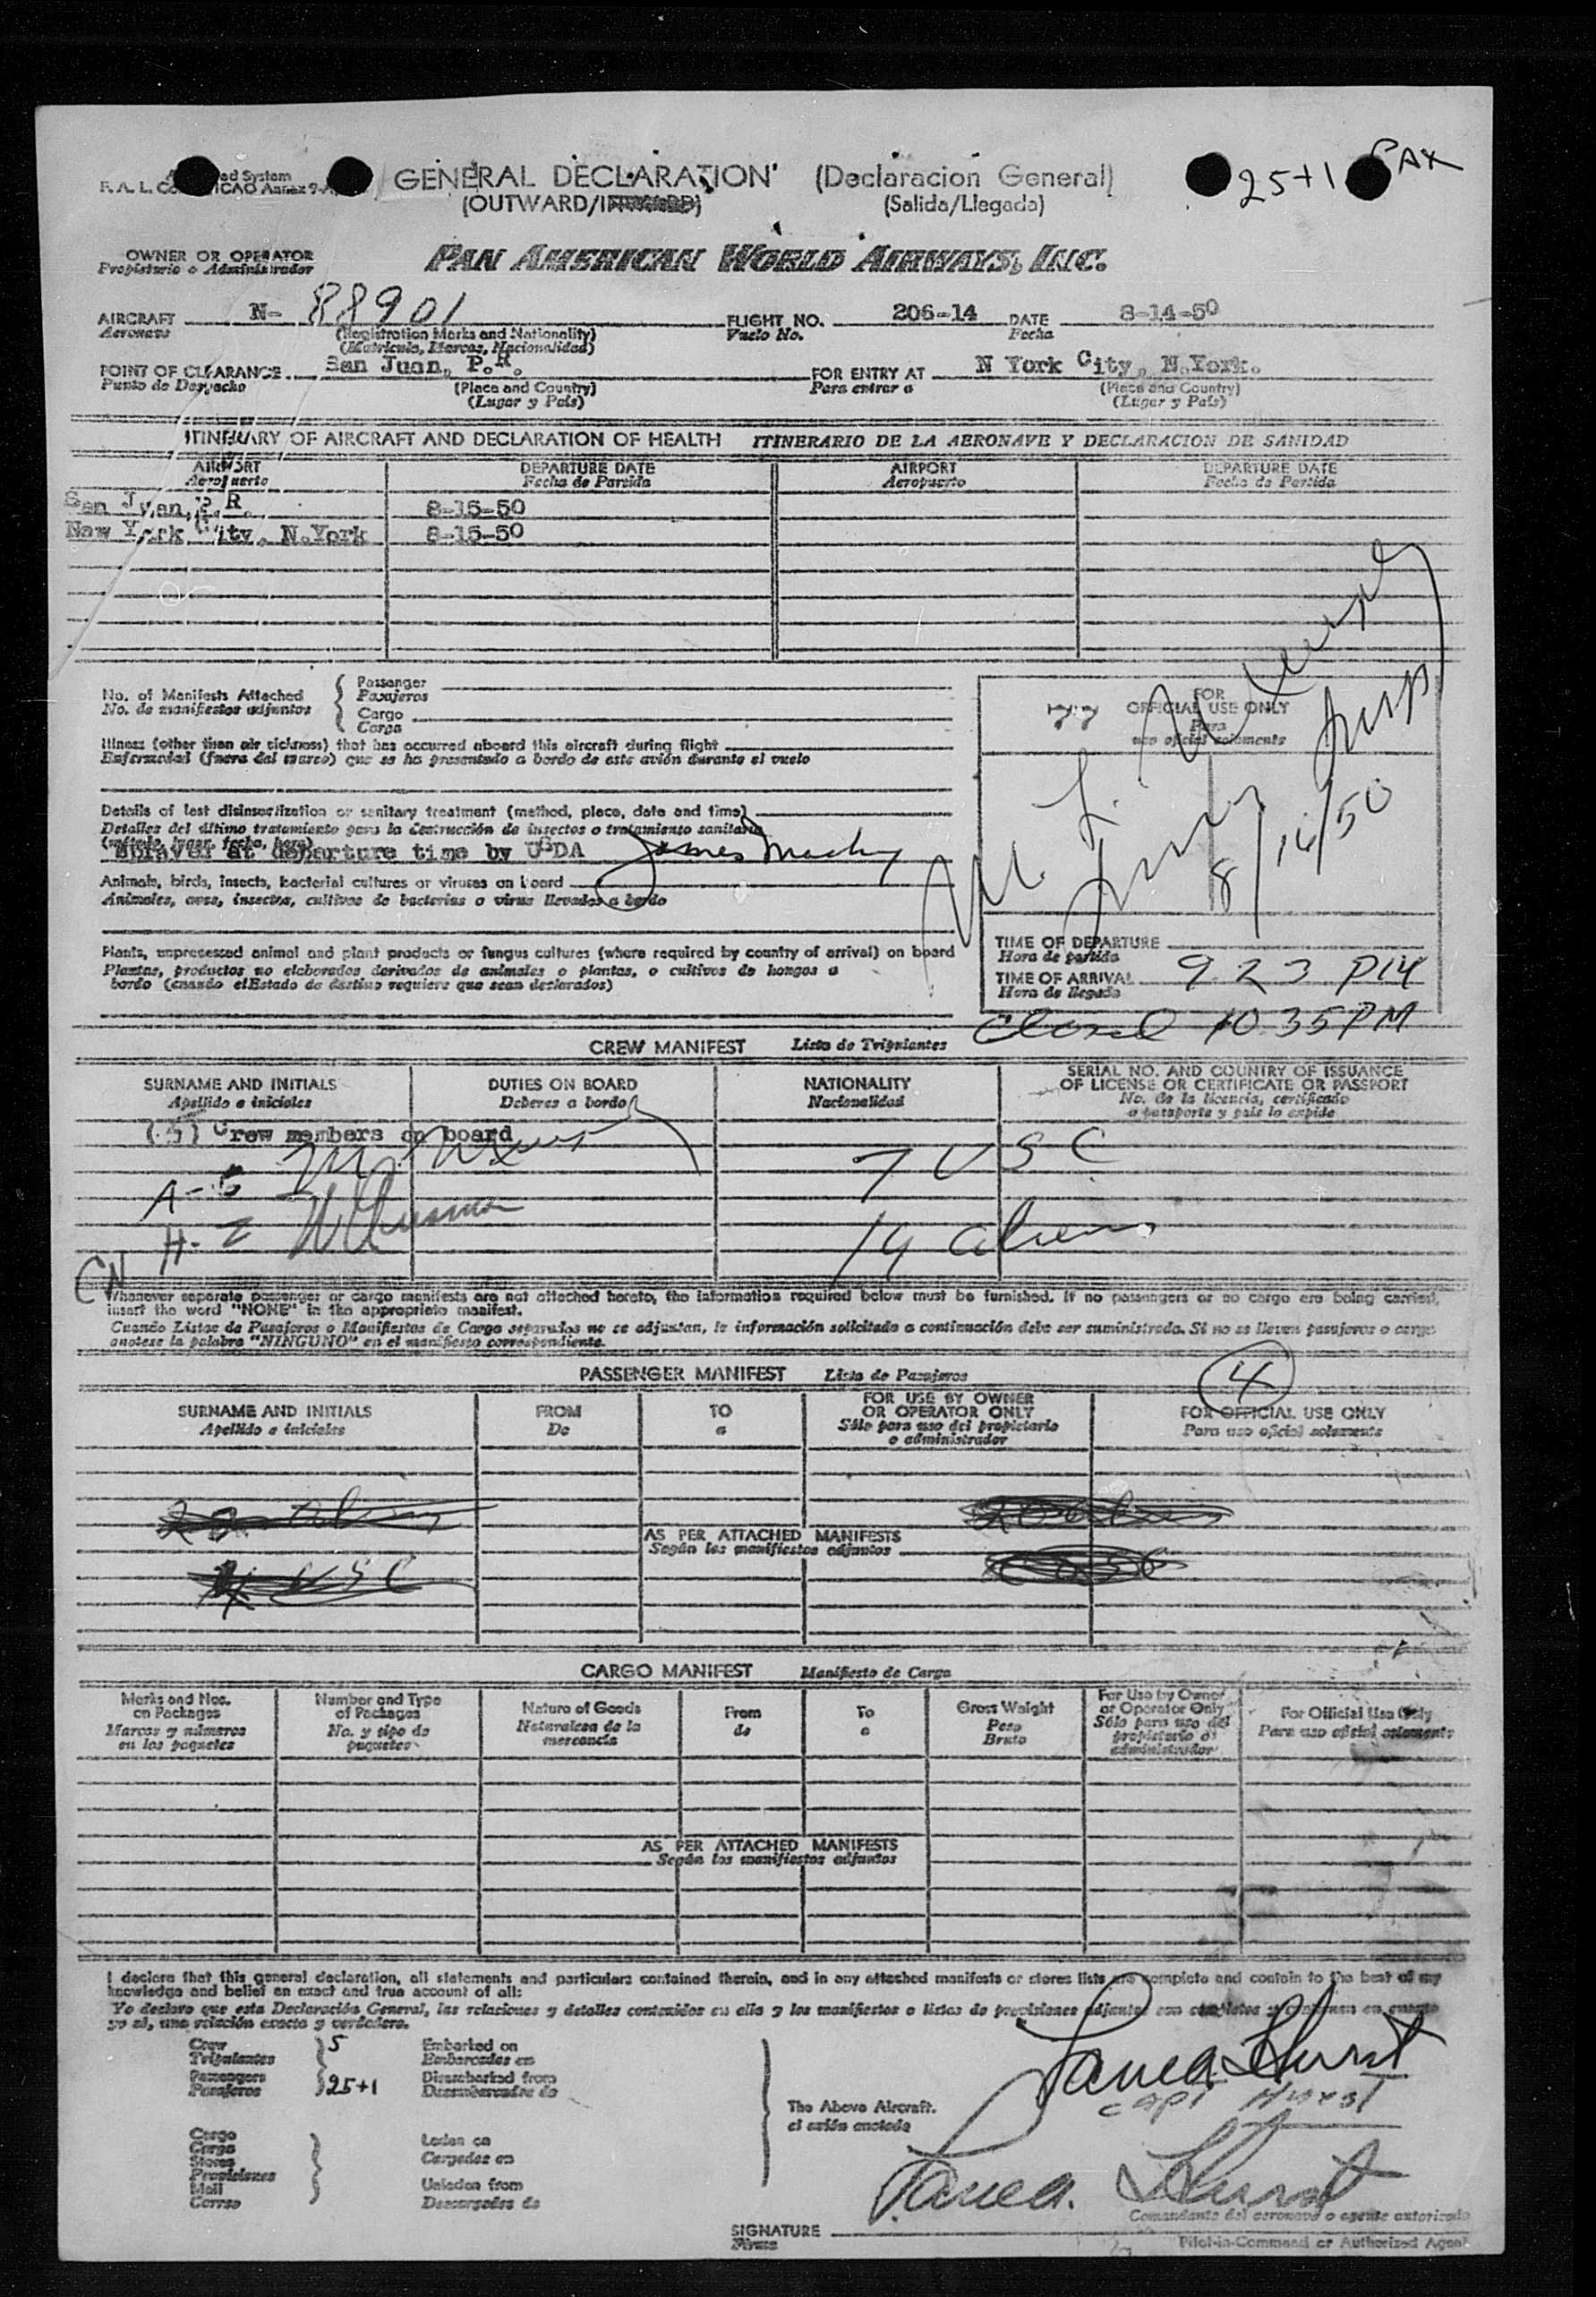 GENERAL DECLARATION (Declaracion General)
25+1 PAX
F. A. L. ICAO Annex 9-A
(OUTWARD/INWARD) (Salida/Llegada)
OWNER OR OPERATOR
Propietario o Administrador
PAN AMERICAN WORLD AIRWAYS, INC.
AIRCRAFT N- 88901 FLIGHT NO. 206-14 DATE 8-14-50
Aeronave (Registration Marks and Nationality) Vuelo No. Fecha
(Matricula, Marcas, Nacionalidad)
POINT OF CLEARANCE San Juan, P.R. FOR ENTRY AT N York City, N.York.
Punto de Despacho (Place and Country) Para entrar a (Place and Country)
(Lugar y País) (Lugar y País)
ITINERARY OF AIRCRAFT AND DECLARATION OF HEALTH ITINERARIO DE LA AERONAVE Y DECLARACION DE SANIDAD
AIRPORT DEPARTURE DATE AIRPORT DEPARTURE DATE
Aeropuerto Fecha de Partida Aeropuerto Fecha de Partida
San Juan, P.R. 8-15-50
New York City, N.York 8-15-50
No. of Manifests Attached
No. de manifiestos adjuntos
Passenger
Pasajeros
Cargo
Carga
FOR
OFFICIAL USE ONLY
Para
uso oficial solamente
Illness (other than air sickness) that has occurred aboard this aircraft during flight
Enfermedad (fuera del mareo) que se ha presentado a bordo de este avión durante el vuelo
Details of last disinsectization or sanitary treatment (method, place, date and time)
Detalles del último tratamiento para la destrucción de insectos o tratamiento sanitario
(método, lugar, fecha, hora)
Sprayed at departure time by USDA
Animals, birds, insects, bacterial cultures or viruses on board
Animales, aves, insectos, cultivos de bacterias o virus llevados a bordo
Plants, unprocessed animal and plant products or fungus cultures (where required by country of arrival) on board
Plantas, productos no elaborados derivados de animales o plantas, o cultivos de hongos a
bordo (cuando el Estado de destino requiere que sean declarados)
TIME OF DEPARTURE
Hora de partida
TIME OF ARRIVAL 9 23 PM
Hora de llegada
Closed 10 35 PM
CREW MANIFEST Lista de Tripulantes
SURNAME AND INITIALS DUTIES ON BOARD NATIONALITY SERIAL NO. AND COUNTRY OF ISSUANCE
OF LICENSE OR CERTIFICATE OR PASSPORT
Apellido e iniciales Deberes a bordo Nacionalidad No. de la licencia, certificado
o pasaporte y país lo expide
(5) Crew members on board
7 USC
A-5
H-2
19 aliens
CN
Whenever separate passenger or cargo manifests are not attached hereto, the information required below must be furnished. If no passengers or no cargo are being carried,
insert the word "NONE" in the appropriate manifest.
Cuando Listas de Pasajeros o Manifiestos de Cargo separados no se adjuntan, la información solicitada a continuación debe ser suministrada. Si no se llevan pasajeros o cargo
anotese la palabra "NINGUNO" en el manifiesto correspondiente.
PASSENGER MANIFEST Lista de Pasajeros
4
SURNAME AND INITIALS FROM TO FOR USE BY OWNER
OR OPERATOR ONLY FOR OFFICIAL USE ONLY
Apellido e iniciales De a Sólo para uso del propietario
o administrador Para uso oficial solamente
AS PER ATTACHED MANIFESTS
Según los manifiestos adjuntos
USC
CARGO MANIFEST Manifiesto de Carga
Marks and Nos.
on Packages
Marcas y números
en los paquetes
Number and Type
of Packages
No. y tipo de
paquetes
Nature of Goods
Naturaleza de la
mercancía
From
de
To
a
Gross Weight
Peso
Bruto
For Use by Owner
or Operator Only
Sólo para uso del
propietario o
administrador
For Official Use Only
Para uso oficial solamente
AS PER ATTACHED MANIFESTS
Según los manifiestos adjuntos
I declare that this general declaration, all statements and particulars contained therein, and in any attached manifests or stores lists are complete and contain to the best of my
knowledge and belief an exact and true account of all:
Yo declaro que esta Declaración General, las relaciones y detalles contenidos en ella y los manifiestos o listas de provisiones adjuntas
Crew
Tripulantes 5
Passengers
Pasajeros 25+1
Embarked on
Embarcados en
Disembarked from
Desembarcados de
The Above Aircraft.
el avión anotado
Capt Hurst
Cargo
Carga
Stores
Provisiones
Mail
Correo
Laden on
Cargados en
Unladen from
Descargados de
SIGNATURE
Firma
Comandante del aeronave o agente autorizado
Pilot-in-Command or Authorized Agent